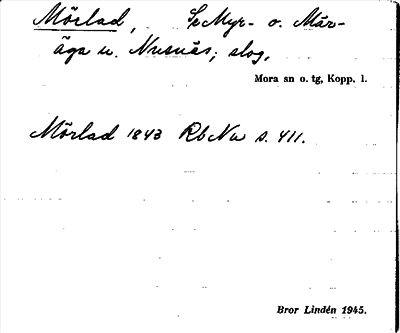 Mörlad, Se Myr- o. Mår-
äga u. Nusnäs; slog.
Mora sn o. tg, Kopp. l.
Mörlad 1843 Rb Nu s. 411.
Bror Lindén 1945.